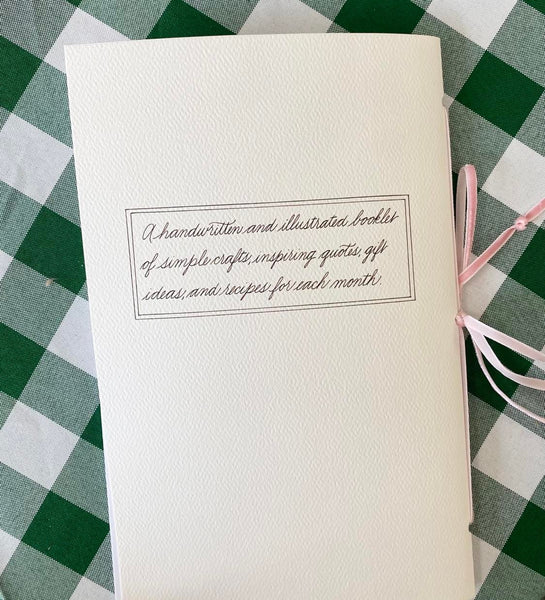 A handwritten and illustrated booklet
of simple crafts, inspiring quotes, gift
ideas, and recipes for each month.